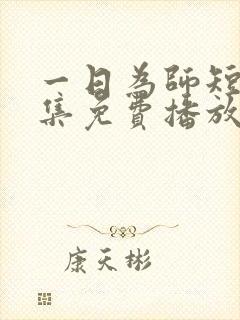 一日为师短
集免费播放
康天彬